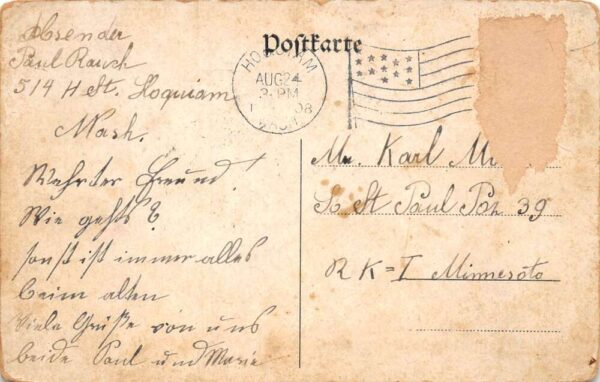 Absender
Paul Rauch
514 H St. Hoquiam
Wash.
Postkarte
HOQUIAM
AUG 24
3-PM
1908
WASH.
Wehrter Freund!
Wie gehts?
sonst ist immer alles
beim alten
Viele Grüße von uns
beide Paul und Marie
Mr. Karl
So St Paul Box 39
R K=I Minnesoto